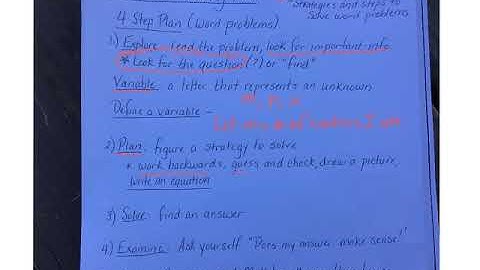 strategies and steps to
solve word problems
4 Step Plan (Word problems)
1) Explore: read the problem, look for important info
* Look for the question (?) or "find"
Variable: a letter that represents an unknown
Define a variable -
Let
2) Plan: figure a strategy to solve
* work backwards, guess and check, draw a picture,
write an equation
3) Solve: find an answer
4) Examine: Ask yourself "Does my answer make sense?"